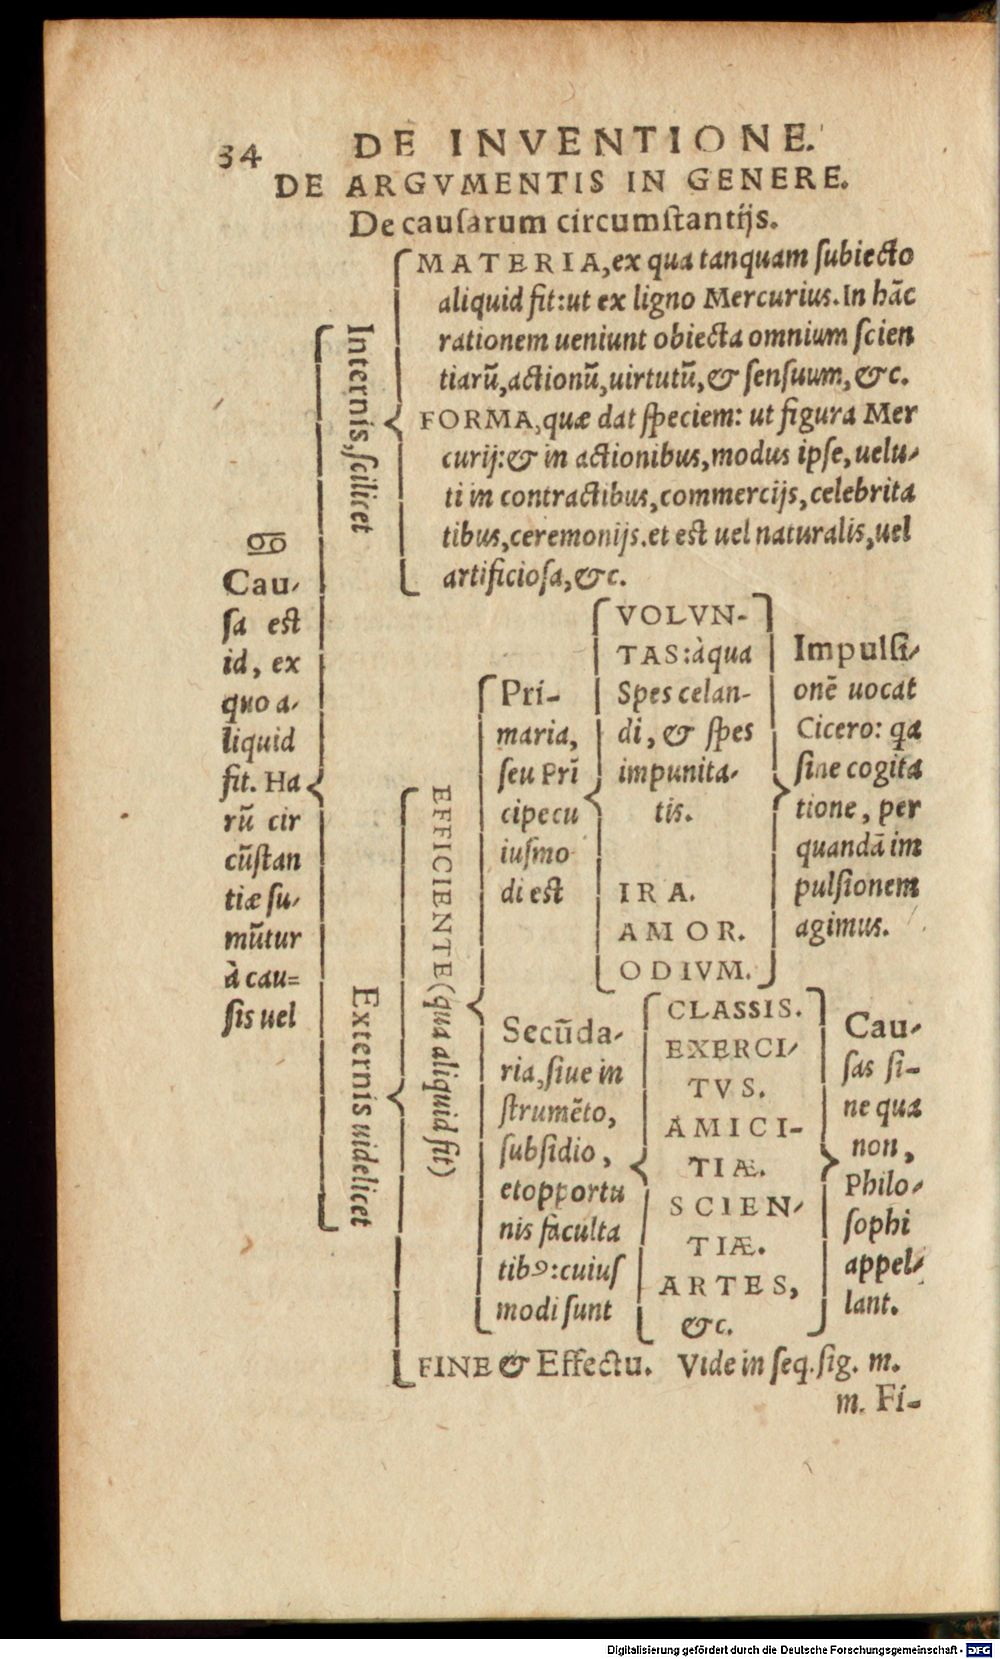 34
DE INVENTIONE.
DE ARGVMENTIS IN GENERE.
De cauſarum circumſtantijs.
Cau-
ſa eſt
id, ex
quo a-
liquid
fit. Ha
rū cir
cūſtan
tiæ ſu-
mūtur
à cau=
ſis uel
Internis, ſcilicet
MATERIA, ex qua tanquam ſubiecto
aliquid fit: ut ex ligno Mercurius. In hāc
rationem ueniunt obiecta omnium ſcien
tiarū, actionū, uirtutū, & ſenſuum, &c.
FORMA, quæ dat ſpeciem: ut figura Mer
curij: & in actionibus, modus ipſe, uelu-
ti in contractibus, commercijs, celebrita
tibus, ceremonijs. et eſt uel naturalis, uel
artificioſa, &c.
Externis uidelicet
EFFICIENTE (qua aliquid fit)
Pri-
maria,
ſeu Pri
cipe cu
iuſmo
di eſt
VOLVN-
TAS: à qua
Spes celan-
di, & ſpes
impunita-
tis.
IRA.
AMOR.
ODIVM.
Impulſi-
onē uocat
Cicero: qa
ſine cogita
tione, per
quandā im
pulſionem
agimus.
Secūda-
ria, ſiue in
ſtrumēto,
ſubſidio,
et opportu
nis faculta
tibꝰ: cuiuſ
modi ſunt
CLASSIS.
EXERCI-
TVS.
AMICI-
TIÆ.
SCIEN-
TIÆ.
ARTES,
&c.
Cau-
ſas ſi-
ne qua
non,
Philo-
ſophi
appel-
lant.
FINE & Effectu. Vide in ſeq. ſig. m.
m. Fi-
Digitalisierung gefördert durch die Deutsche Forschungsgemeinschaft - DFG